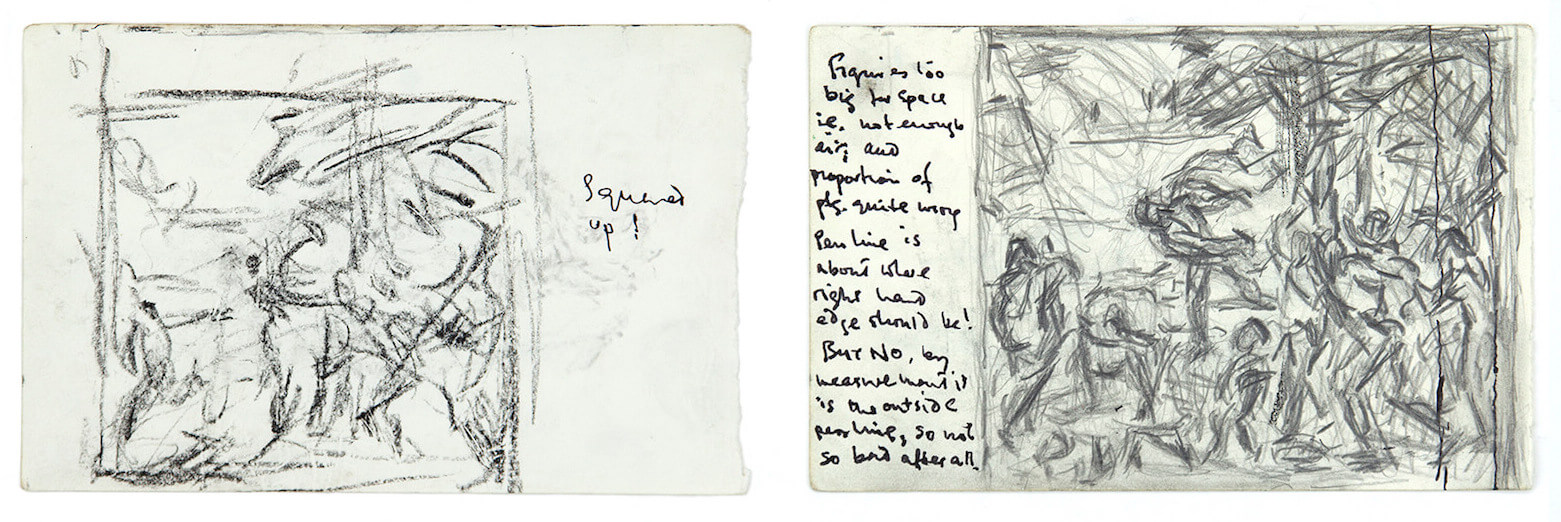 Squared
up!
Figures too
big for space
ie. not enough
air; and
proportion of
ptg. quite wrong
Pen line is
about where
right hand
edge should be!
But NO, by
measurement it
is the outside
pen line, so not
so bad after all.